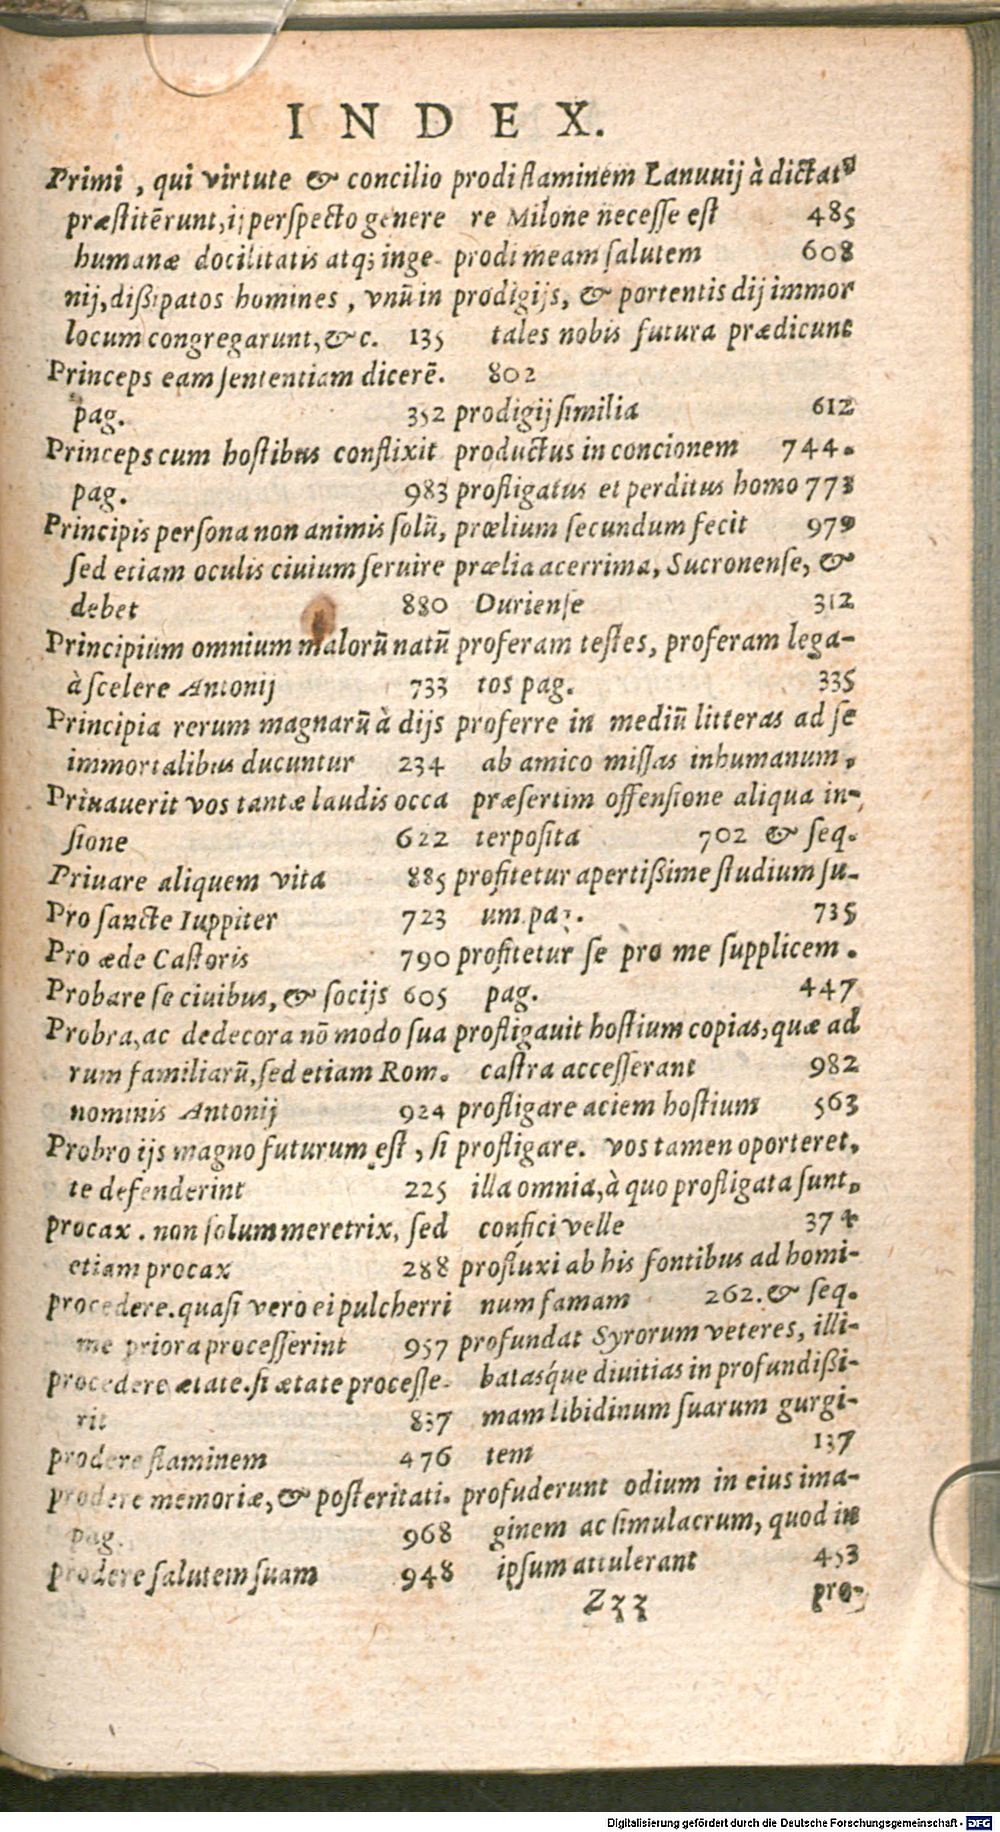 INDEX.
Primi, qui virtute & concilio
præstitērunt, ij perspecto genere
humanæ docilitatis atq; inge-
nij, dißipatos homines, vnū in
locum congregarunt, & c. 135
Princeps eam sententiam dicerē.
pag. 352
Princeps cum hostibus conflixit
pag. 983
Principis persona non animis solū,
sed etiam oculis ciuium seruire
debet 880
Principium omnium malorū natū
à scelere Antonij 733
Principia rerum magnarū à dijs
immortalibus ducuntur 234
Priuauerit vos tantæ laudis occa
sione 622
Priuare aliquem vita 885
Pro sancte Iuppiter 723
Pro æde Castoris 790
Probare se ciuibus, & socijs 605
Probra, ac dedecora nō modo sua
rum familiarū, sed etiam Rom.
nominis Antonij 924
Probro ijs magno futurum est, si
te defenderint 225
procax. non solum meretrix, sed
etiam procax 288
procedere. quasi vero ei pulcherri
me priora processerint 957
procedere ætate. si ætate processe-
rit 837
prodere flaminem 476
prodere memoriæ, & posteritati.
pag. 968
prodere salutem suam 948
prodi flaminem Lanuuij à dictat
re Milone necesse est 485
prodi meam salutem 608
prodigijs, & portentis dij immor
tales nobis futura prædicunt
802
prodigij similia 612
productus in concionem 744.
profligatus et perditus homo 773
prœlium secundum fecit 979
prælia acerrima, Sucronense, &
Duriense 312
proferam testes, proferam lega-
tos pag. 335
proferre in mediū litteras ad se
ab amico missas inhumanum,
præsertim offensione aliqua in-
terposita 702 & seq.
profitetur apertißime studium su-
um. pag. 735
profitetur se pro me supplicem.
pag. 447
profligauit hostium copias, quæ ad
castra accesserant 982
profligare aciem hostium 563
profligare. vos tamen oporteret,
illa omnia, à quo profligata sunt,
confici velle 374
profluxi ab his fontibus ad homi-
num famam 262. & seq.
profundat Syrorum veteres, illi-
batasq́ue diuitias in profundißi-
mam libidinum suarum gurgi-
tem 137
profuderunt odium in eius ima-
ginem ac simulacrum, quod in
ipsum attulerant 453
Zzz pro-
Digitalisierung gefördert durch die Deutsche Forschungsgemeinschaft - DFG